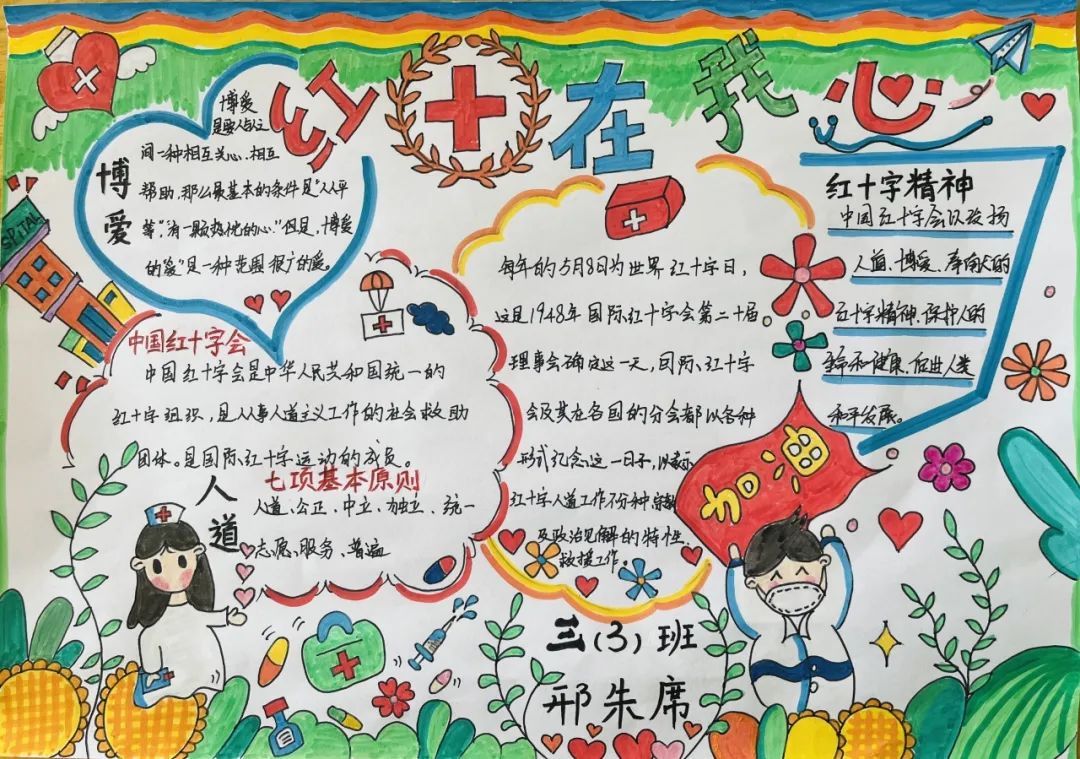 红十在我心
博爱
博爱
是人与人之
间一种相互关心、相互
帮助,那么最基本的条件是“人人平
等”,“有一颗热忱的心。”但是,博爱
的“爱”是一种范围很广的爱。
SPITAL
中国红十字会
中国红十字会是中华人民共和国统一的
红十字组织,是从事人道主义工作的社会救助
团体。是国际红十字运动的成员。
人道
七项基本原则
人道、公正、中立、独立、统一
志愿、服务、普遍
每年的5月8日为世界红十字日,
这是1948年国际红十字会第二十届
理事会确定这一天,国际红十字
会及其在各国的分会都以各种
形式纪念这一日子,以表示
红十字人道工作不分种
及政治见解的特性
救援工作。
红十字精神
中国红十字会以发扬
人道、博爱、奉献的
红十字精神,保护人的
生命和健康,促进人类
和平发展。
加油
三(3)班
邢朱席